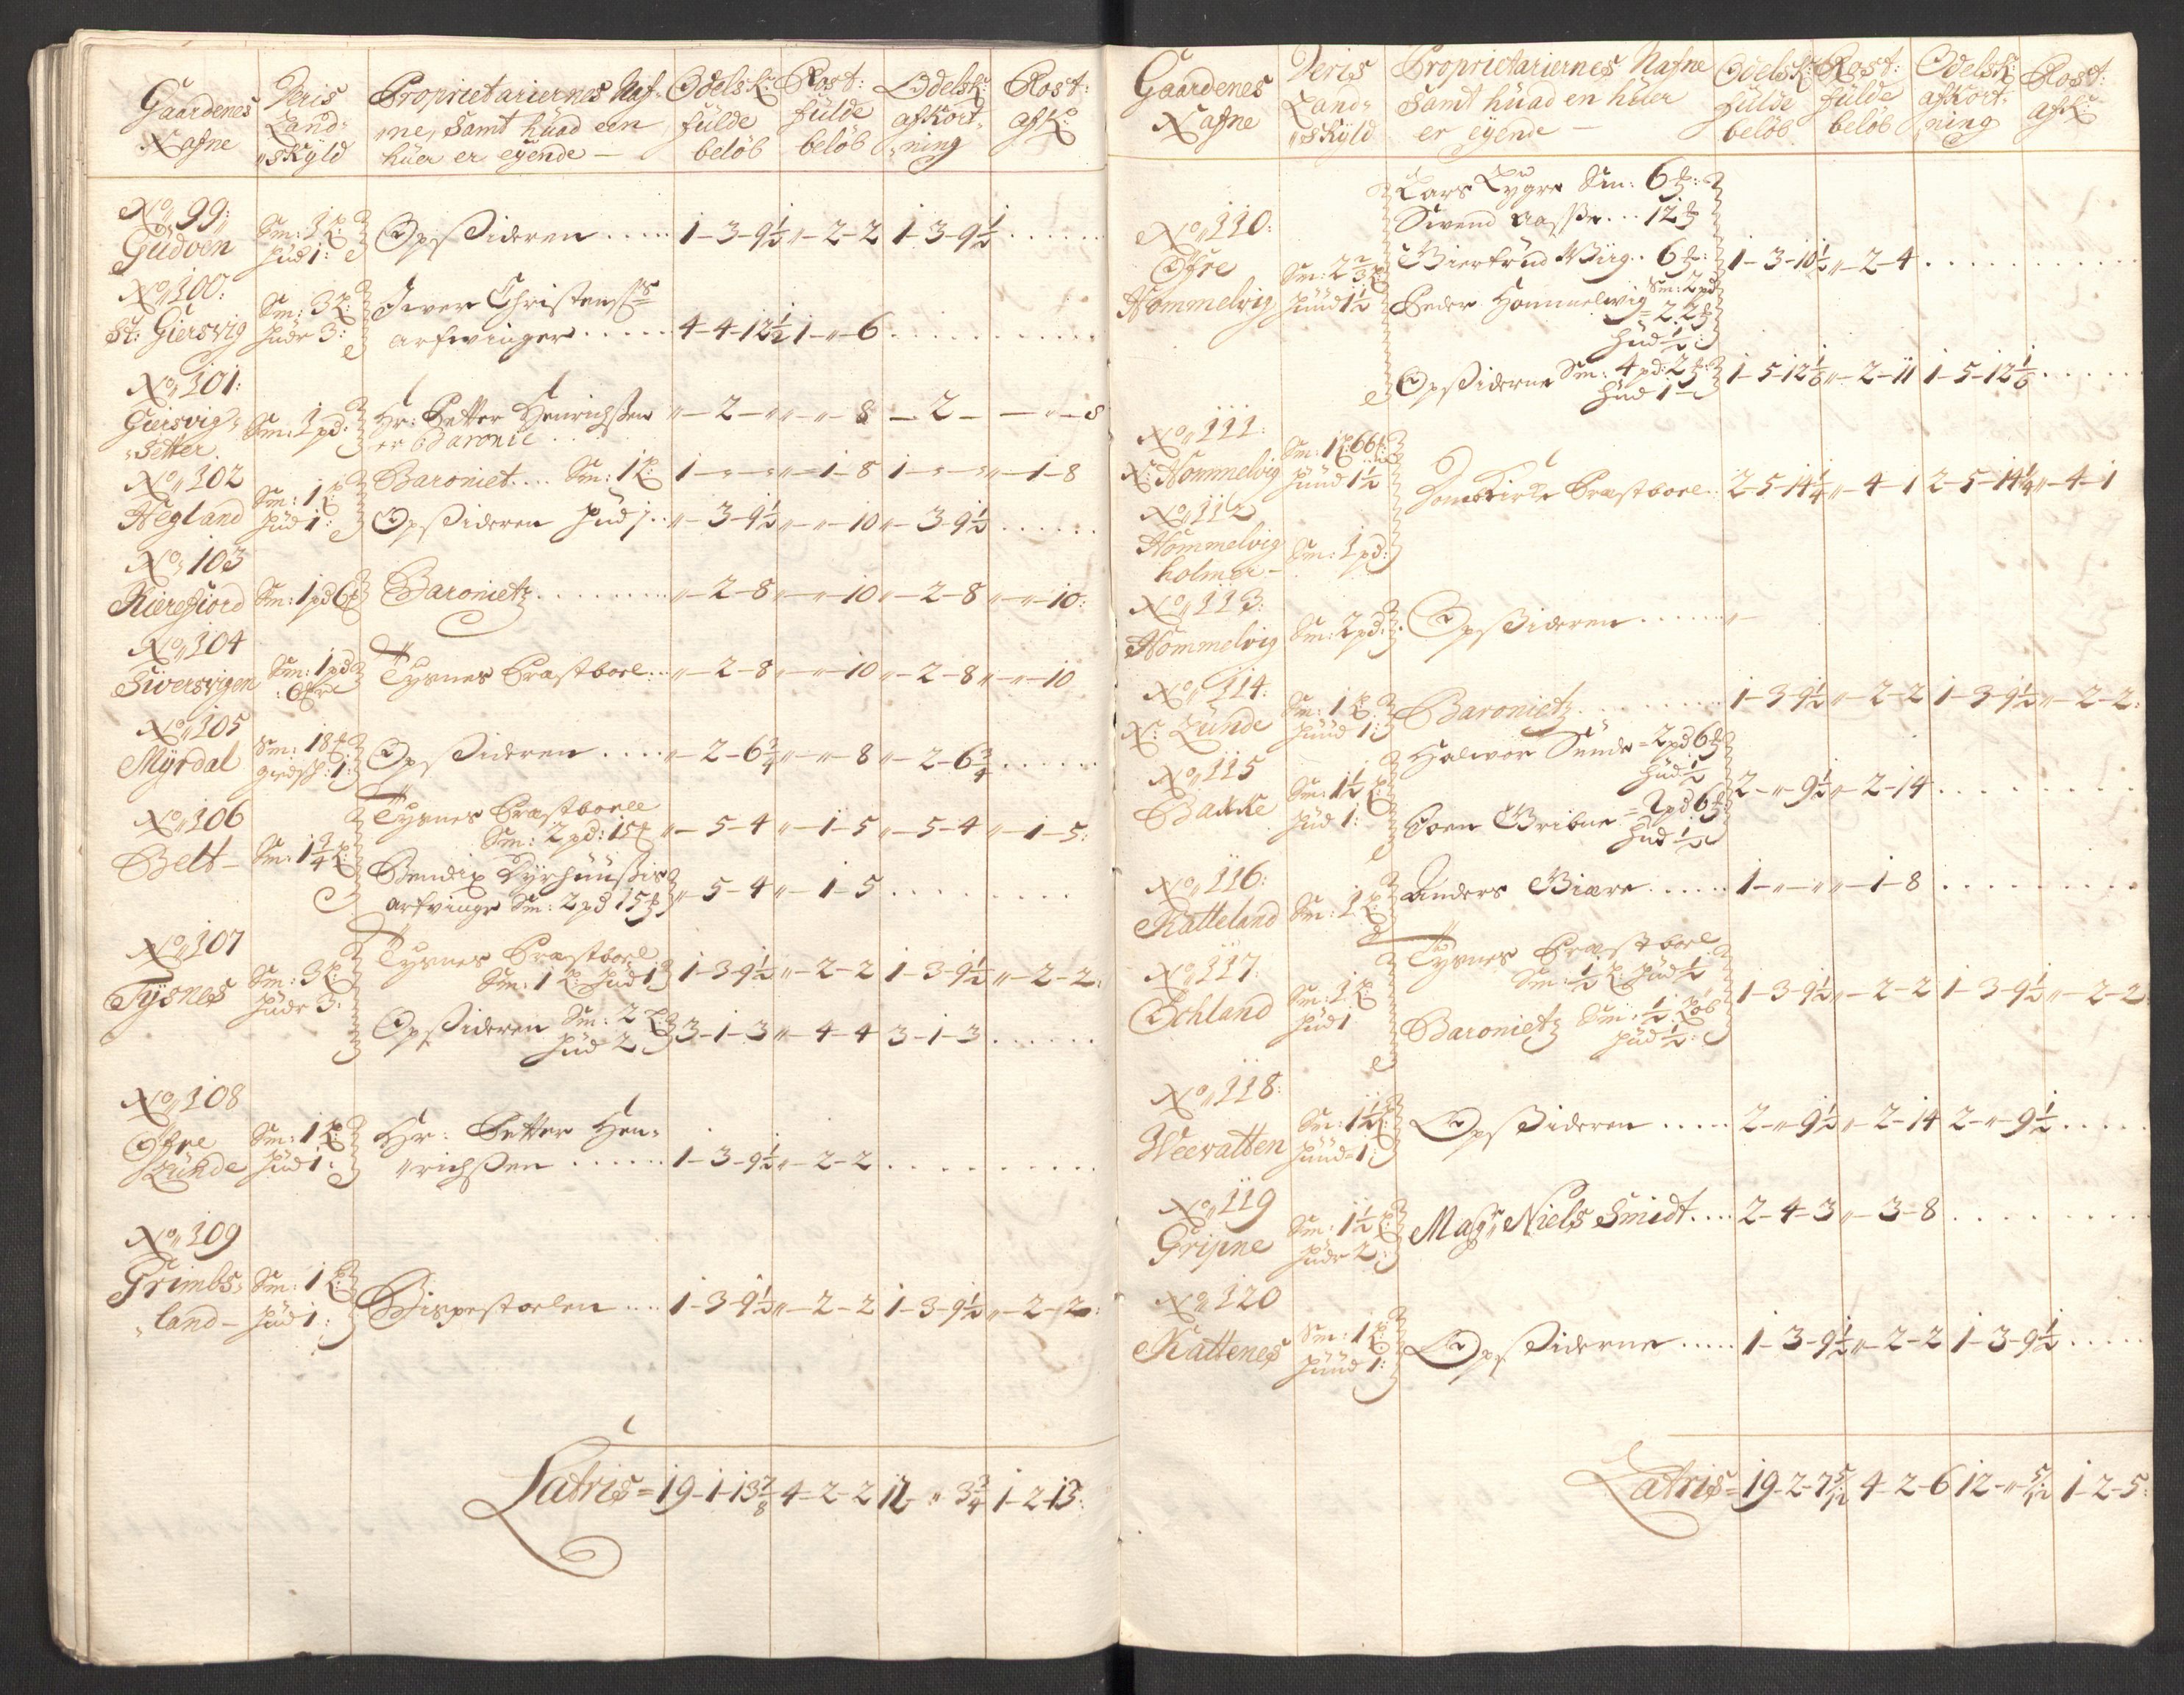 Gaardenes Nafne | Deris Land- skyld | Proprietariernes Naf- ne, Samt huad een huer er eyende — | Odelsk: fulde beløb | Rost: fulde beløb | Odelsk: afkort- ning | Rost: afk:
No 99: Gudøen | Sm: 1 L: Hud 1: | Opsideren ..... | 1-3-9½ | "-2-2 | 1-3-9½ | ......
No 100: St: Giersvig | Sm: 3 L: Huder 3: | Iver Christens: arfvinger ..... | 4-4-12½ | 1-"-6 | ......
No 101: Giersvig- Setter | Sm: 1 pd: | Hr: Petter Henrichsen er Baronie | "-2-" | "-"-8 | -2- | -"-8
No 102 Hegland | Sm: 1 L: Hud 1: | Baroniet ... Sm: 1 L: | 1-"-" | "-1-8 | 1-"-" | "-1-8
Opsideren Hud 1 .. | "-3-9½ | "-"-10 | "-3-9½ | ......
No 103 Kierefiord | Sm: 1 pd 6 | Baroniet ........ | "-2-8 | "-"-10 | "-2-8 | "-"-10:
No 104 Siversvigen | Sm: 1 pd 6 | Tysnes Præstboel .. | "-2-8 | "-"-10 | "-2-8 | "-"-10
No 105 Myrdal | Sm: 18 giedsk: 1: | Opsideren .... | "-2-6¾ | "-"-8 | "-2-6¾ | ......
No 106 Belt — | Sm: 1¾ L: | Tysnes Præstboell Sm: 2 pd: 15 | "-5-4 | "-1-5 | "-5-4 | "-1-5:
Bendix Dyrhuusis arfvinge Sm: 2 pd 15 | "-5-4 | "-1-5 | ......
No 107 Tysnes | Sm: 3 L: Huder 3: | Tysnes Præstboel Sm: 1 L: Hud 1 | 1-3-9½ | "-2-2 | 1-3-9½ | "-2-2:
Opsideren Sm: 2 L: Hud 2 | 3-1-3 | "-4-4 | 3-1-3 | ......
No 108 Øfre Lunde | Sm: 1 L: Hud 1: | Hr: Petter Hen- richsen ...... | 1-3-9½ | "-2-2 | ......
No 109 Grimbs- land — | Sm: 1 L: Hud 1: | Bispestoelen .... | 1-3-9½ | "-2-2 | 1-3-9½ | "-2-2:
Latris = 19-1-13⅞ | 4-2-2 | 12-"-3¾ | 1-2-13:
Gaardenes Nafne | Deris Land- skyld | Proprietariernes Nafne Samt huad en huer er eyende — | Odelsk: fulde beløb | Rost: fulde beløb | Odelsk afkort- ning | Rost: afk:
No 110: Øfre Hommelvig | Sm: 2⅔ L: Huud 1½ | Lars Lygre Sm: 6
Svend Aasse ... 12
Giertrud Wiig .. 6 | 1-3-10½ | "-2-4 | ......
Peder Hommelvig Sm: 2 pd 22 Hud ½:
Opsiderne Sm: 4 pd: 2 Hud 1 | 1-5-12⅙ | "-2-11 | 1-5-12⅙ | ......
No 111: N: Hommelvig | Sm: 1 L: 66 Huud 1½ | Domkirke Præstboel .. | 2-5-14¼ | "-4-1 | 2-5-14¼ | "-4-1
No 112 Hommelvig holmer — | Sm: 1 pd:
No 113: Hommelvig | Sm: 2 pd: | Opsideren ..... "—
No 114: N: Lunde | Sm: 1 L: Huud 1: | Baroniet ....... | 1-3-9½ | "-2-2 | 1-3-9½ | "-2-2:
No 115 Bakke | Sm: 1½ L: Hud 1: | Halvor Sunde = 2 pd 6 Hud ½ | 2-"-9½ | "-2-14 | ......
Soen Gribne = 2 pd 6 Hud ½
No 116: Katteland | Sm: 1 L: | Anders Biære ...... | 1-"-" | "-1-8 | ......
No 117: Echland | Sm: 1 L Hud 1 | Tysnes Præstboel Sm: ½ L: Hud ½ | 1-3-9½ | "-2-2 | 1-3-9½ | "-2-2:
Baroniet Sm: ½ Løb Hud ½:
No 118: Weevatten | Sm: 1½ L: Huud = 1: | Opsideren ..... | 2-"-9½ | "-2-14 | 2-"-9½ | .....
No 119 Gripne | Sm: 1½ L: Huder 2: | Magr Niels Smidt .... | 2-4-3 | "-3-8 | ......
No 120 Kattenes | Sm: 1 L: Huud 1: | Opsiderne ..... | 1-3-9½ | "-2-2 | 1-3-9½ | .....
Latris = 19-2-7 5/12 | 4-2-6 | 12-"-5/12 | 1-2-5: